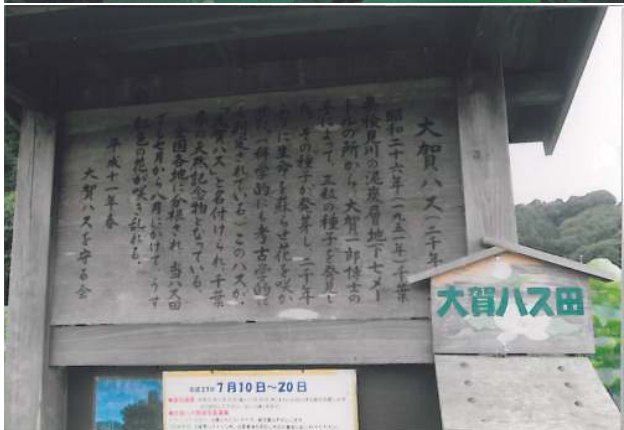 大賀ハス(二千年
昭和二十六年(一九五一年)千葉
県検見川の泥炭層地下七メー
トルの所から、大賀一郎博士の
手によって、三粒の種子を発見し
た。その種子が発芽し、二千年
ぶりに生命を蘇らせ花を咲か
せた。科学的にも考古学的に
も判定されている。このハスが、
「大賀ハス」と名付けられ、千葉
県の天然記念物となっている。
全国各地に分根され、当ハス田
でも七月から八月にかけて、うす
紅色の花が咲き乱れる。
平成十一年春
大賀ハスを守る会
大賀ハス田
平成27年7月10日〜20日